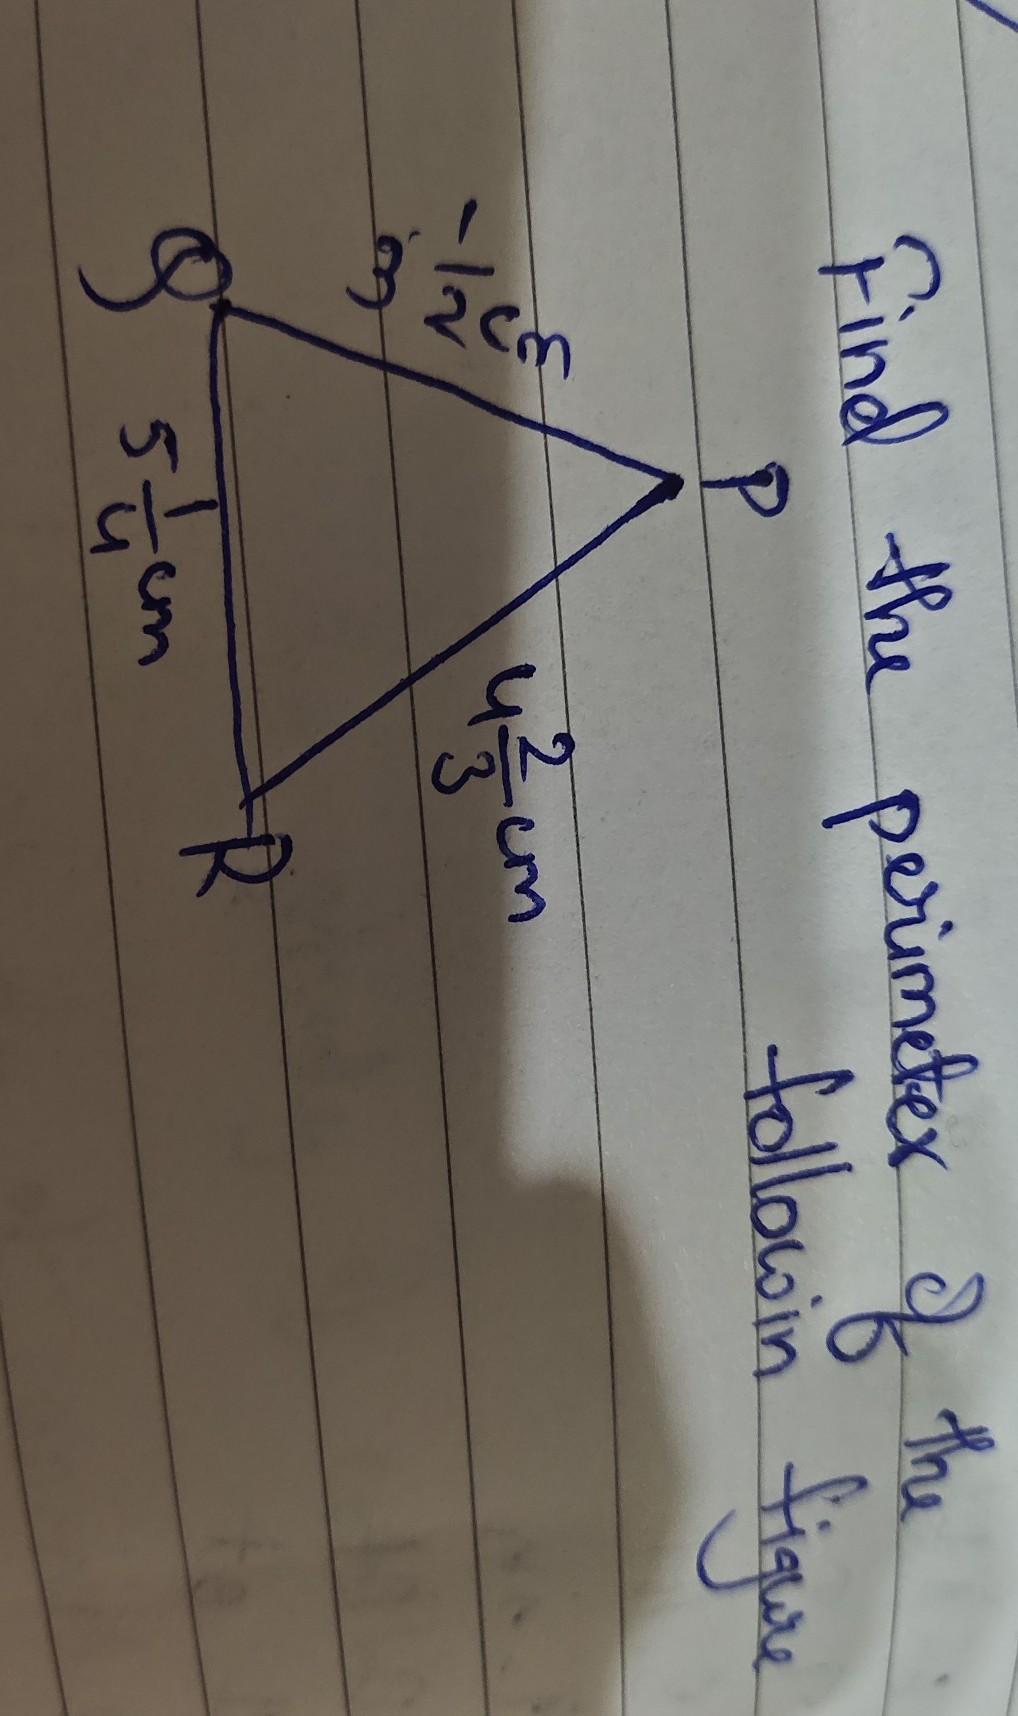 Find the perimeter of the
followin figure
P
3 1/2 cm
4 2/3 cm
Q
R
5 1/4 cm